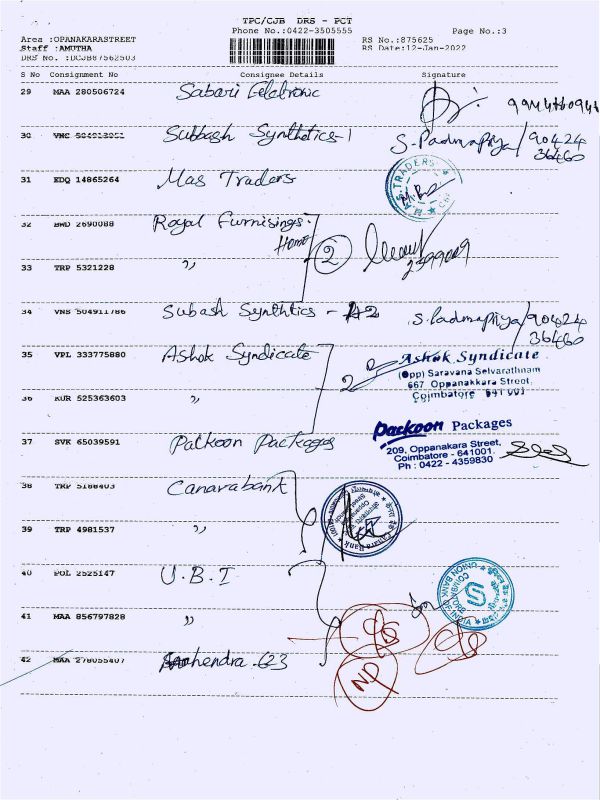 TPC/CJB DRS - PCT
Phone No.:0422-3505555
Page No.:3
Area :OPANAKARASTREET
RS No.:875625
Staff :AMUTHA
RS Date:12-Jan-2022
DRS No. :DCJB87562503
S No Consignment No Consignee Details Signature
29 MAA 280506724 Sabari Electronic
30 VNC 504913051 Subbash Synthetics-1 S.Padmapriya/90424
36460
31 EDQ 14865264 Mas Traders M.A.S. TRADERS
32 BWD 2690088 Royal Furnisings.
Home
2
33 TRP 5321228 "
34 VNS 504911786 Subash Synthtics - A2 S.Padmapriya/90424
36460
35 VPL 333775880 Ashok Syndicate 2 Ashok Syndicate
(Opp) Saravana Selvarathnam
667 Oppanakkara Street,
Coimbatore 641 001
36 KUR 525363603 "
37 SVK 65039591 Patkoon Packages Packoon Packages
209, Oppanakara Street,
Coimbatore - 641001.
Ph : 0422 - 4359830
38 TRP 5188403 Canarabank
39 TRP 4981537 "
Canara Bank
40 POL 2525147 U.B.I
UNION BANK OF INDIA
COIMBATORE
41 MAA 856797828 "
42 MAA 278055407 Mahendra.G23
NP